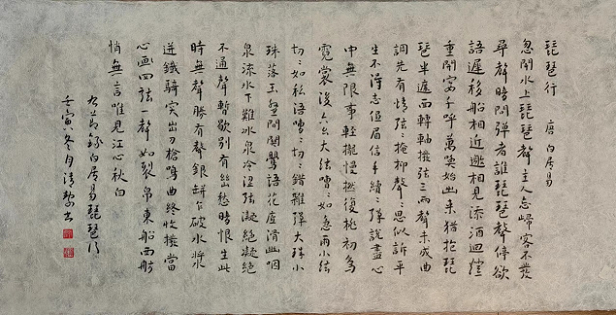 琵琶行 唐 白居易
忽聞水上琵琶聲主人忘歸客不發
尋聲暗問彈者誰琵琶聲停欲
語遲移船相近邀相見添酒迴燈
重開宴千呼萬喚始出來猶抱琵
琶半遮面轉軸撥弦三兩聲未成曲
調先有情弦〻掩抑聲〻思似訴平
生不得志低眉信手續〻彈說盡心
中無限事輕攏慢撚撥復挑初為
霓裳後六么大弦嘈〻如急雨小弦
切〻如私語嘈〻切〻錯雜彈大珠小
珠落玉盤間關鶯語花底滑幽咽
泉流水下難冰泉冷澀弦凝絕凝絕
不通聲暫歇別有幽愁暗恨生此
時無聲勝有聲銀缾乍破水漿
迸鐵騎突出刀槍鳴曲終收撥當
心畫四弦一聲如裂帛東船西舫
悄無言唯見江心秋白
白居易琵琶行
壬寅冬月清書